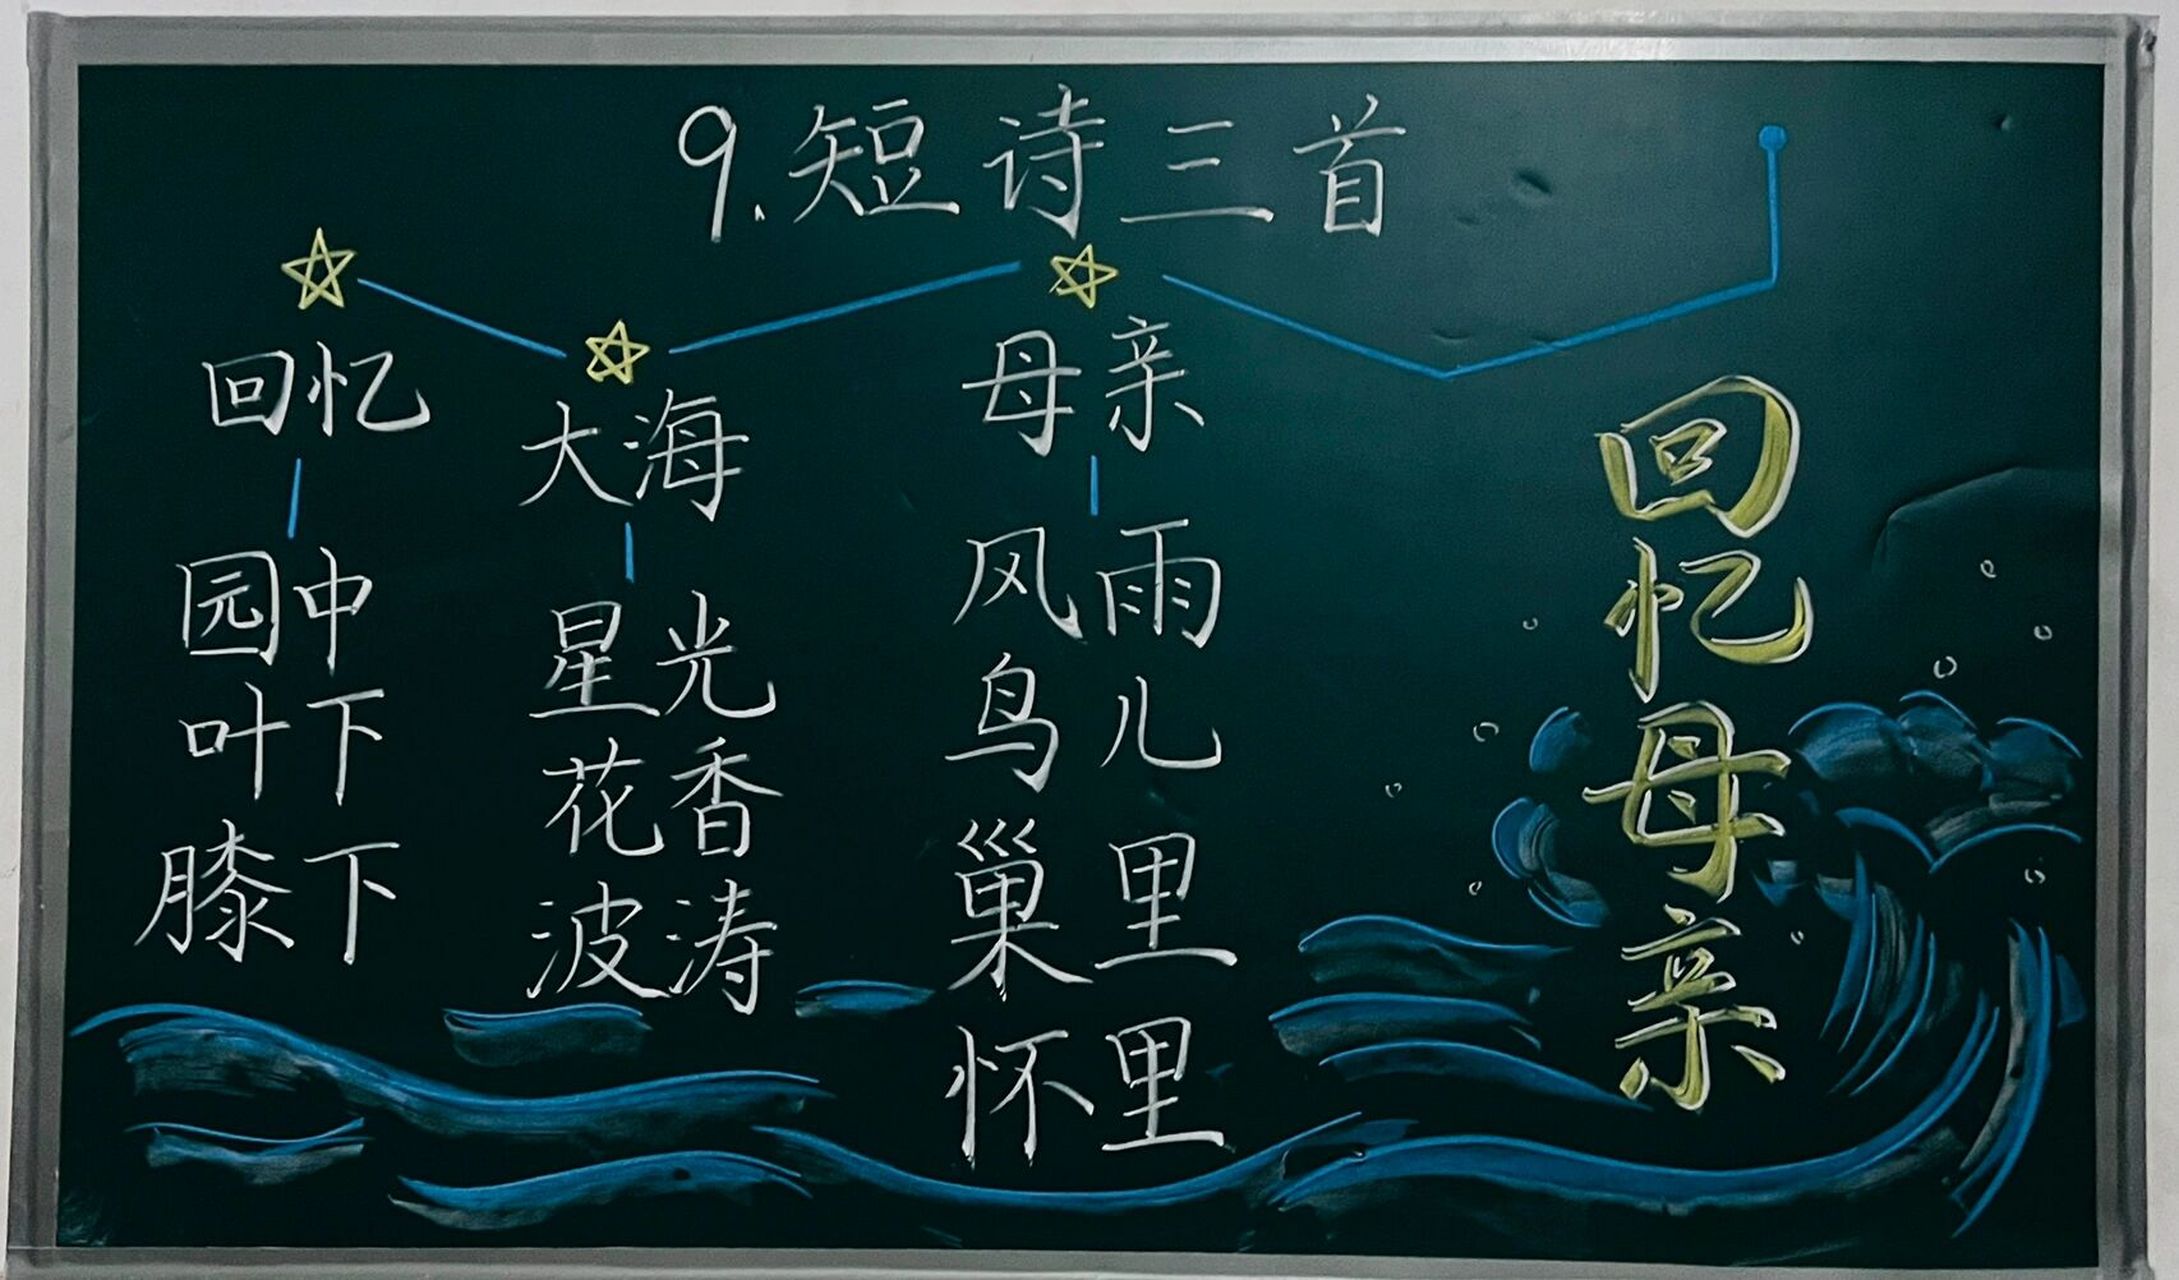 9.短诗三首
回忆
园中
叶下
膝下
大海
星光
花香
波涛
母亲
风雨
鸟儿
巢里
怀里
回忆母亲